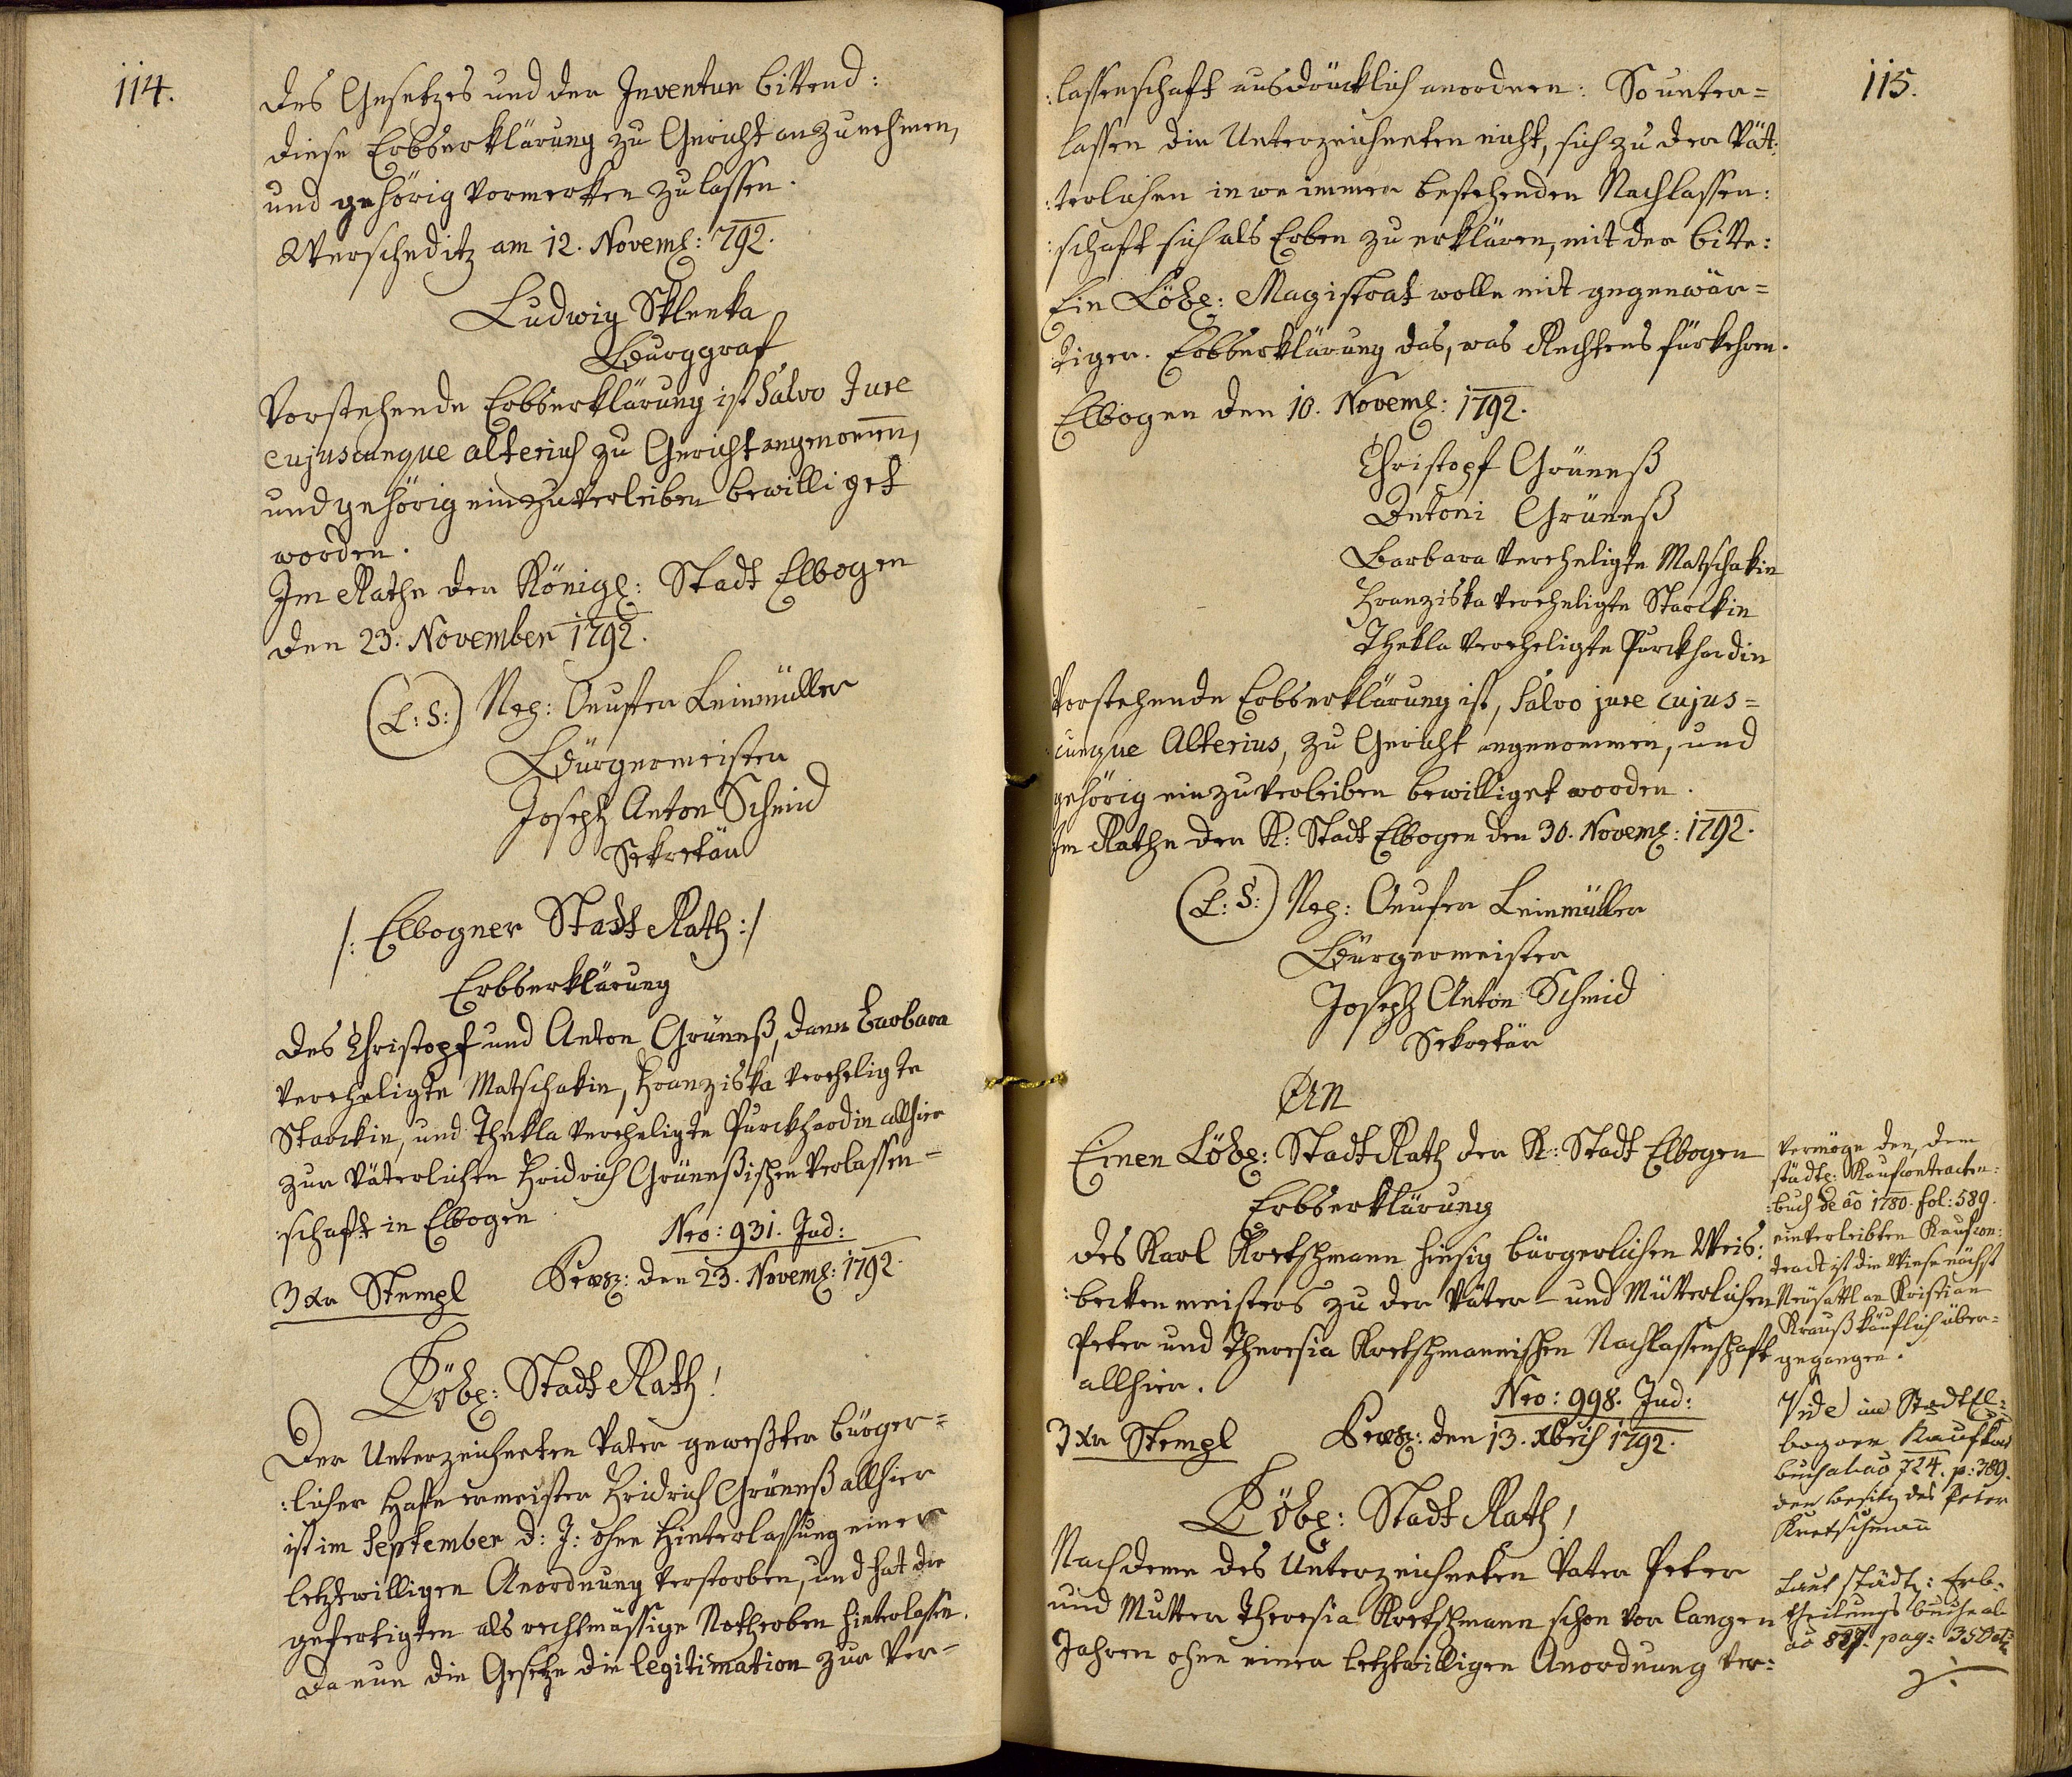 114.
des Gesetzes und der Inventur bittend:
diese Erbserklärung zu Gericht anzunehmen,
und gehörig vormerken zu lassen.
Werscheditz am 12. Novem͠: 792.
Ludwig Sklenka
Burggraf
Vorstehende Erbserklärung ist Salvo Jure
cujuscunque alterius zu Gericht angenom̅en,
und gehörig einzuverleiben bewilliget
worden.
Im Rathe der Königl: Stadt Elbogen
den 23. November 1792.
(L: S:) Leinmüller
Bürgermeister
Joseph Anton Schmid
Sekretär
/: Elbogner Stadt Rath :/
Erbserklärung
des Christopf und Anton Grüneß, dann Barbara
vereheligte Matschakin, Franziska vereheligte
Starckin, und Thekla vereheligte Purckhardin allhier
zur Väterlichen Fridrich Grüneßischen Verlassen-
:schaft in Elbogen
Nro: 931. Jud:
3 xr Stempl Praes: den 23. Novem͠: 1792.
Löbl: Stadt Rath!
Der Unterzeichneten Vater geweßter bürger=
:licher Hafnermeister Fridrich Grüneß allhier
ist im September d: J: ohne Hinterlassung einer
letztwilligen Anordnung verstorben, und hat die
gefertigten als rechtmässige Notherben hinterlassen.
Da nun die Gesetze die legitimation zur Ver-
115.
:lassenschaft ausdrücklich anordnen: So unter=
lassen die Unterzeichneten nicht, sich zu der Vät:
:terlichen in wo immer bestehenden Nachlassen:
:schaft sich als Erben zu erklären, mit der bitte:
Ein Löbl: Magistrat wolle mit gegenwär=
:tiger Erbserklärung das, was Rechtens fürkehren.
Elbogen den 10. Novem͠: 1792.
Christopf Grüneß
Antoni Grüneß
Barbara vereheligte Matschakin
Franziska vereheligte Starckin
Thekla vereheligte Purckhardin
Vorstehende Erbserklärung ist, Salvo jure cujus=
:cunque Alterius, zu Gericht angenommen, und
gehörig einzuverleiben bewilliget worden.
Im Rathe der K: Stadt Elbogen den 30. Novem͠: 1792.
(L: S:) Leinmüller
Bürgermeister
Joseph Anton Schmid
Sekretär
An
Einen Löbl: Stadt Rath der K: Stadt Elbogen
Erbserklärung
des Karl Kretschmann hiesig bürgerlichen Weis:
:beckenmeisters zu der Väter- und Mütterlichen
Peter und Theresia Kretschmannischen Nachlassenschaft
allhier.
Nro: 998. Jud:
3 xr Stempl Praes: den 13. Xbris 1792.
Löbl: Stadt Rath!
Nachdeme des Unterzeichneten Vater Peter
und Mutter Theresia Kretschmann schon vor langen
Jahren ohne einer letztwilligen Anordnung ver:
Vermöge den, dem
städt: Kaufcontracten:
:buch de aō 1780. fol: 589.
einverleibten Kaufcon:
tract ist die Wiese nächst
Neüsattl an Kristian
Krauß käuflich über=
gegangen.
Vide im Stadt El:
bogner Kauf
buch ab aō 724. p: 389.
den besitz des Peter
Kretschmann
Laut städt: Erb:
theilungs buche ab
aō pag: 350